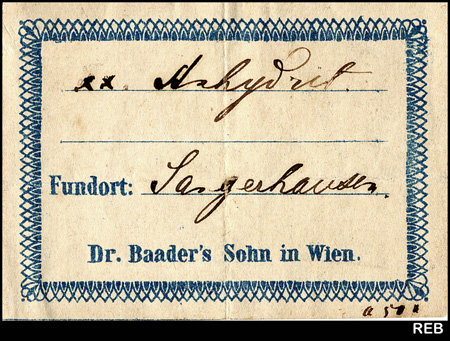 xx. Anhydrit.
Fundort: Sangerhausen.
Dr. Baader's Sohn in Wien.
a 50
REB